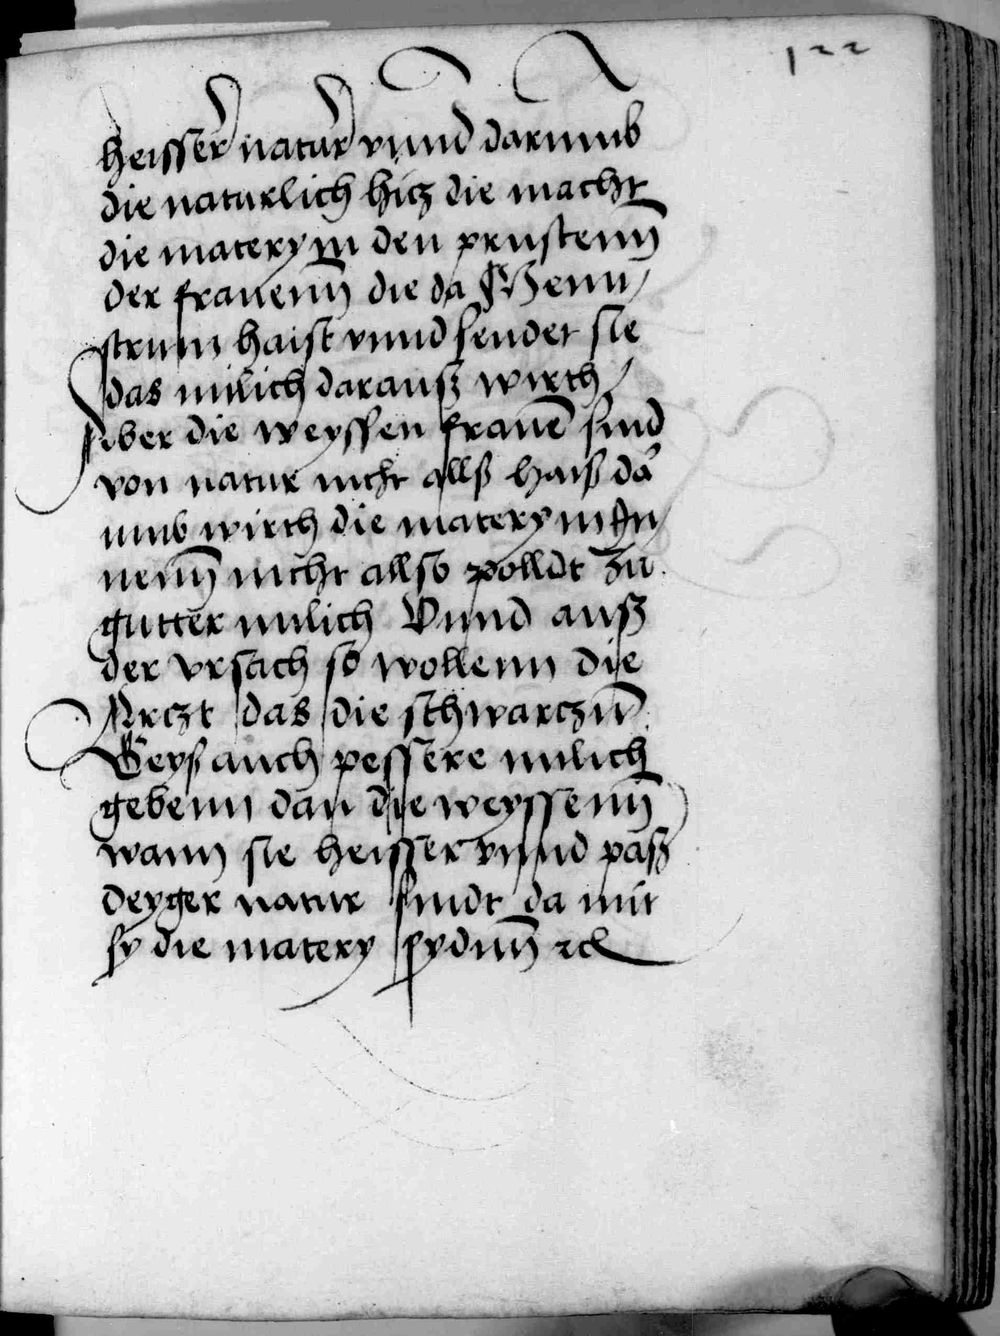 122
heisser natur vnnd darumb
die naturlich hicz die macht
die matery in den prustenn
der frauenn die da Menn/
strum haist vnnd sendet sie
das milich darauß wirth/
Aber die weyssen frauen sind
von natur nicht allß haiß dar
umb wirth die matery in In/
nenn nicht allso polldt zu
gutter milich Vnnd auß
der vrsach so wollenn die
Arczt das die schwarczn
Geyß auch pessere milich
gebenn dan die weyssenn
wann sie heisser vnnd paß
deyger natur sindt da mit
sy die matery sydnn rc